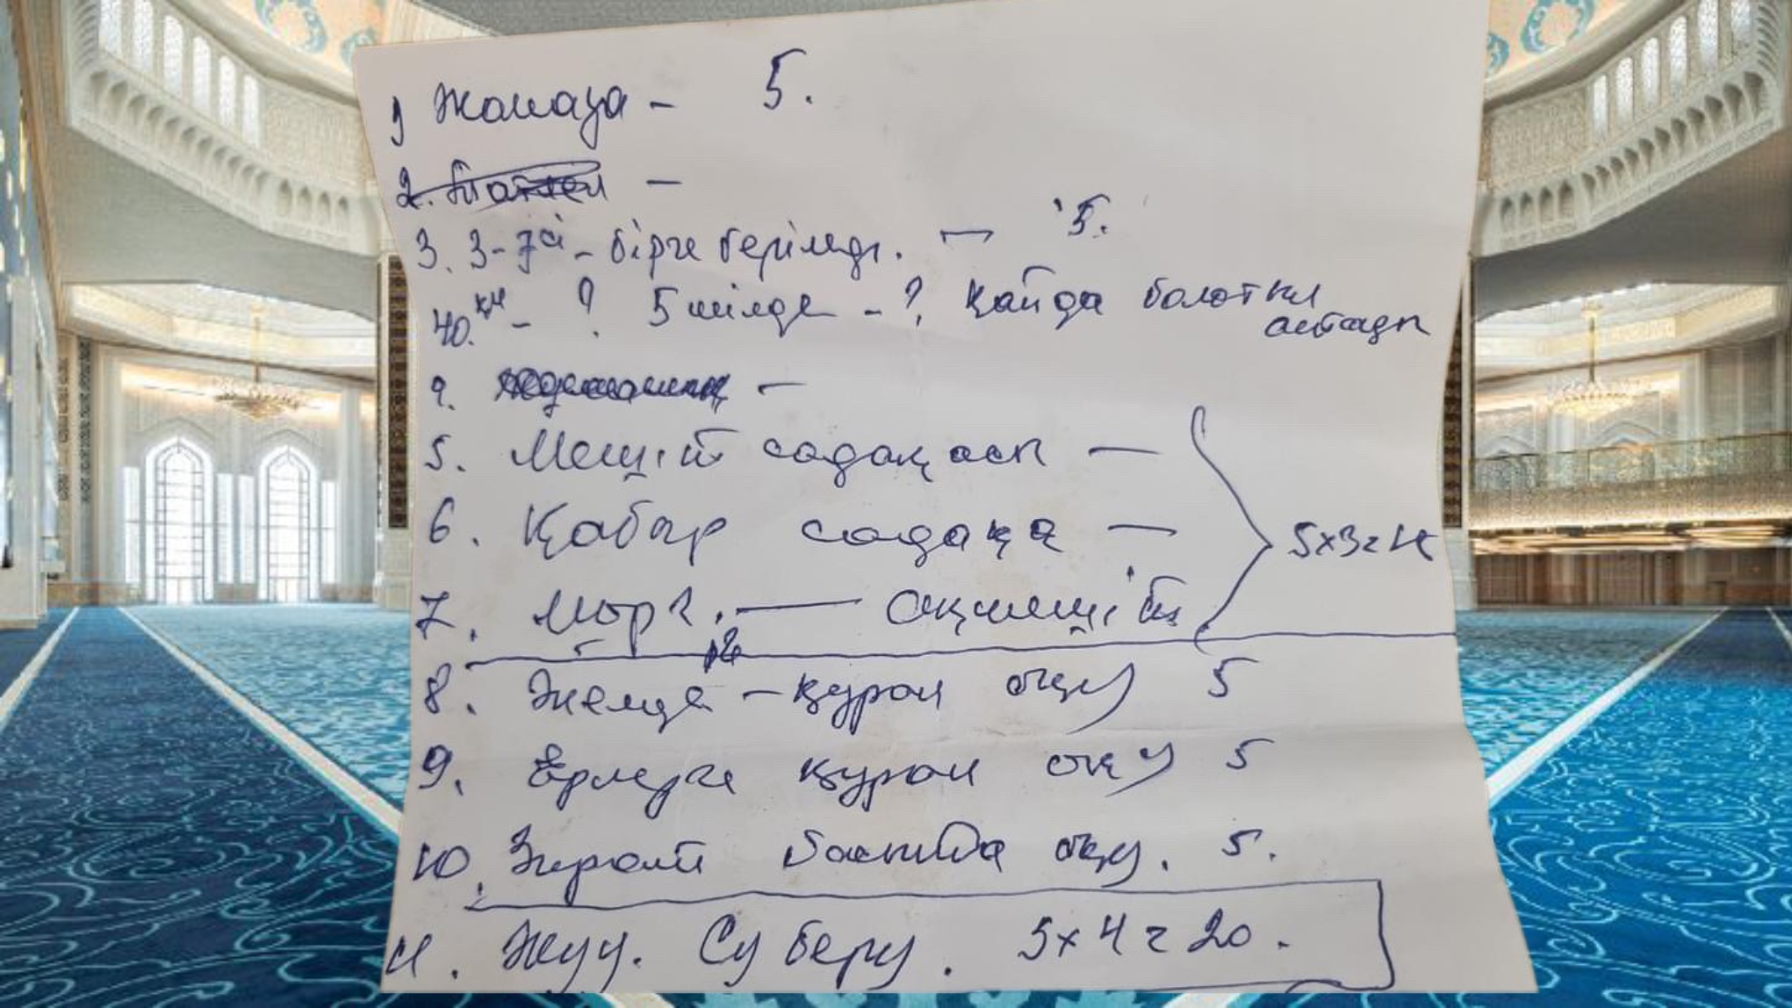 1 Жаназа - 5.
2. -
3. 3-7сі - бірге беріледі. — 5.
40.қы - ? 5 шілде - ? Қайда болатны
айтады
4. -
5. Мешіт садақасы —
6. Қабыр садақа —
7. Мөрг. — Ақмешіт
5x3=15
8. Жемде - құран оқу 5
9. Ерлерге құран оқу 5
10. Зират басында оқу. 5.
11. Жуу. Су беру. 5x4=20.